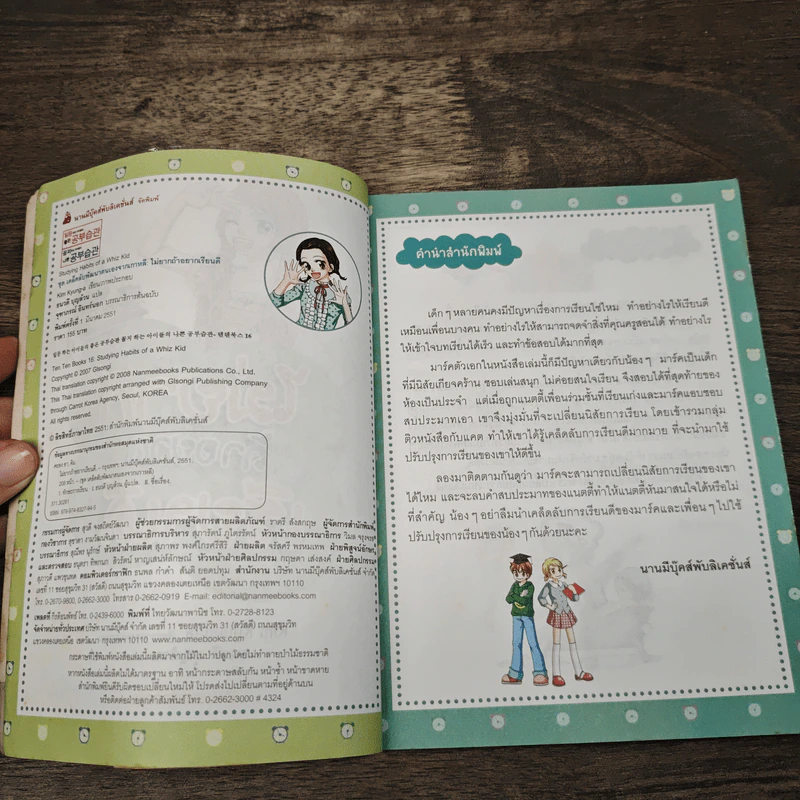 นานมีบุ๊คส์พับลิเคชั่นส์ จัดพิมพ์
공부습관
공부습관
Studying Habits of a Whiz Kid
ชุด เคล็ดลับพัฒนาตนเองจากเกาหลี ไม่ยากถ้าอยากเรียนดี
Kim Kyung-a เขียนภาพประกอบ
ธนวดี บุญล้วน แปล
จุฑาภรณ์ อินทร์นอก บรรณาธิการต้นฉบับ
พิมพ์ครั้งที่ 1 มีนาคม 2551
ราคา 155 บาท
Ten Ten Books 16: Studying Habits of a Whiz Kid
Copyright © 2007 Glsongi
Thai translation copyright © 2008 Nanmeebooks Publications Co., Ltd.
This Thai translation copyright arranged with Glsongi Publishing Company
through Carrot Korea Agency, Seoul, KOREA
All rights reserved.
© ลิขสิทธิ์ภาษาไทย 2551: สำนักพิมพ์นานมีบุ๊คส์พับลิเคชั่นส์
ข้อมูลทางบรรณานุกรมของสำนักหอสมุดแห่งชาติ
ไม่ยากถ้าอยากเรียนดี.- กรุงเทพฯ: นานมีบุ๊คส์พับลิเคชั่นส์, 2551.
371.30281
เลขที่ 11 ซอยสุขุมวิท 31 (สวัสดี) ถนนสุขุมวิท แขวงคลองเตยเหนือ เขตวัฒนา กรุงเทพฯ 10110
โทร. 0-2670-9800, 0-2662-3000 โทรสาร 0-2662-0919 E-mail: editorial@nanmeebooks.com
โทร. 0-2439-6000 พิมพ์ที่ ไทยวัฒนาพานิช โทร. 0-2728-8123
จัดจำหน่ายทั่วประเทศ บริษัท นานมีบุ๊คส์ จำกัด เลขที่ 11 ซอยสุขุมวิท 31 (สวัสดี) ถนนสุขุมวิท
แขวงคลองเตยเหนือ เขตวัฒนา กรุงเทพฯ 10110 www.nanmeebooks.com
กระดาษที่ใช้พิมพ์หนังสือเล่มนี้ผลิตมาจากไม้ในป่าปลูก โดยไม่ทำลายป่าไม้ธรรมชาติ
หากหนังสือเล่มนี้ผลิตไม่ได้มาตรฐาน อาทิ หน้ากระดาษสลับกัน หน้าซ้ำ หน้าขาดหาย
สำนักพิมพ์ยินดีรับผิดชอบเปลี่ยนใหม่ให้ โปรดส่งไปเปลี่ยนตามที่อยู่ด้านบน
หรือติดต่อฝ่ายลูกค้าสัมพันธ์ โทร. 0-2662-3000 # 4324
คำนำสำนักพิมพ์
เด็ก ๆ หลายคนคงมีปัญหาเรื่องการเรียนใช่ไหม ทำอย่างไรให้เรียนดี
เหมือนเพื่อนบางคน ทำอย่างไรให้สามารถจดจำสิ่งที่คุณครูสอนได้ ทำอย่างไร
ให้เข้าใจบทเรียนได้เร็ว และทำข้อสอบได้มากที่สุด
มาร์คตัวเอกในหนังสือเล่มนี้ก็มีปัญหาเดียวกับน้อง ๆ มาร์คเป็นเด็ก
ที่มีนิสัยเกียจคร้าน ชอบเล่นสนุก ไม่ค่อยสนใจเรียน จึงสอบได้ที่สุดท้ายของ
ห้องเป็นประจำ แต่เมื่อถูกแนตตี้เพื่อนร่วมชั้นที่เรียนเก่งและมาร์คแอบชอบ
สบประมาทเอา เขาจึงมุ่งมั่นที่จะเปลี่ยนนิสัยการเรียน โดยเข้าร่วมกลุ่ม
ติวหนังสือกับแคต ทำให้เขาได้รู้เคล็ดลับการเรียนดีมากมาย ที่จะนำมาใช้
ปรับปรุงการเรียนของเขาให้ดีขึ้น
ลองมาติดตามกันดูว่า มาร์คจะสามารถเปลี่ยนนิสัยการเรียนของเขา
ได้ไหม และจะลบคำสบประมาทของแนตตี้ทำให้แนตตี้หันมาสนใจได้หรือไม่
ที่สำคัญ น้อง ๆ อย่าลืมนำเคล็ดลับการเรียนดีของมาร์คและเพื่อน ๆ ไปใช้
ปรับปรุงการเรียนของน้อง ๆ กันด้วยนะคะ
นานมีบุ๊คส์พับลิเคชั่นส์